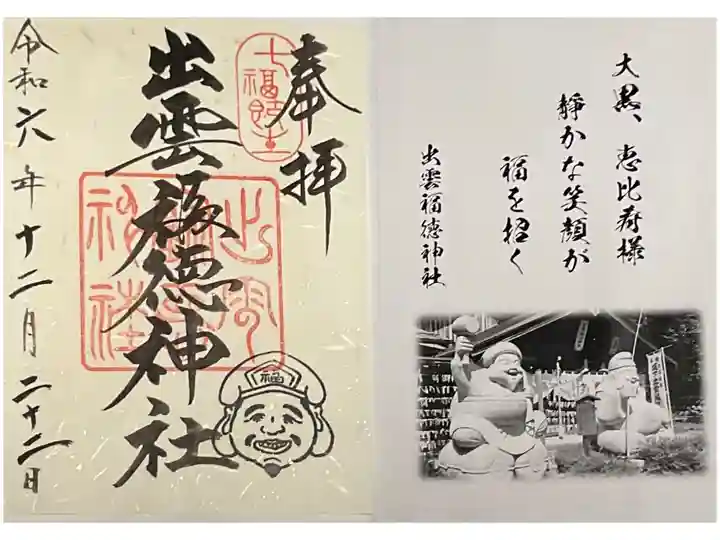 奉拝
七福即生
出雲福徳神社
福
令和六年十二月二十二日
大黒、恵比寿様
静かな笑顔が
福を招く
出雲福徳神社